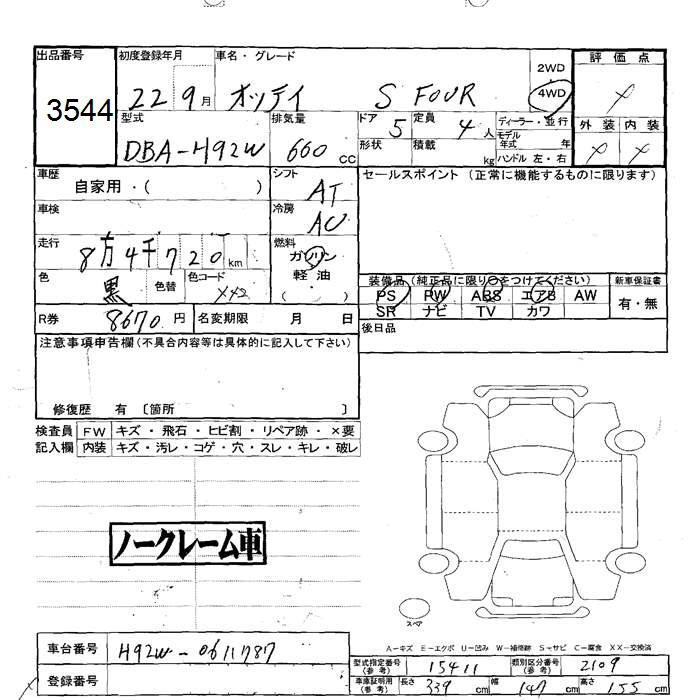 出品番号 初度登録年月 車名・グレード 2WD 評価点
3544 22 9月 オッティ S FOUR 4WD
型式 排気量 ドア 5 定員 4人 ディーラー・並行 外装 内装
DBA-H92W 660cc 形状 積載 kg モデル年式 年 ハンドル 左・右
車歴 自家用・( ) シフト AT セールスポイント(正常に機能するものに限ります)
車検 冷房 AC
走行 8万4千720km 燃料 ガソリン
色 黒 色替 色コード 軽油 ( ) 装備品(純正品に限り○をつけてください) 新車保証書
PS PW ABS エアB AW 有・無
R券 8670円 名変期限 月 日 SR ナビ TV カワ
注意事項申告欄(不具合内容等は具体的に記入して下さい) 後日品
修復歴 有〔箇所 〕
検査員 FW キズ・飛石・ヒビ割・リペア跡・×要
記入欄 内装 キズ・汚レ・コゲ・穴・スレ・キレ・破レ
ノークレーム車
スペア
A-キズ E-エクボ U-凹み W-補修跡 S-サビ C-腐食 XX-交換済
車台番号 H92W-0611787 型式指定番号(参考) 15411 類別区分番号(参考) 2109
登録番号 車庫証明用(参考) 長さ 339cm 幅 147cm 高さ 155cm